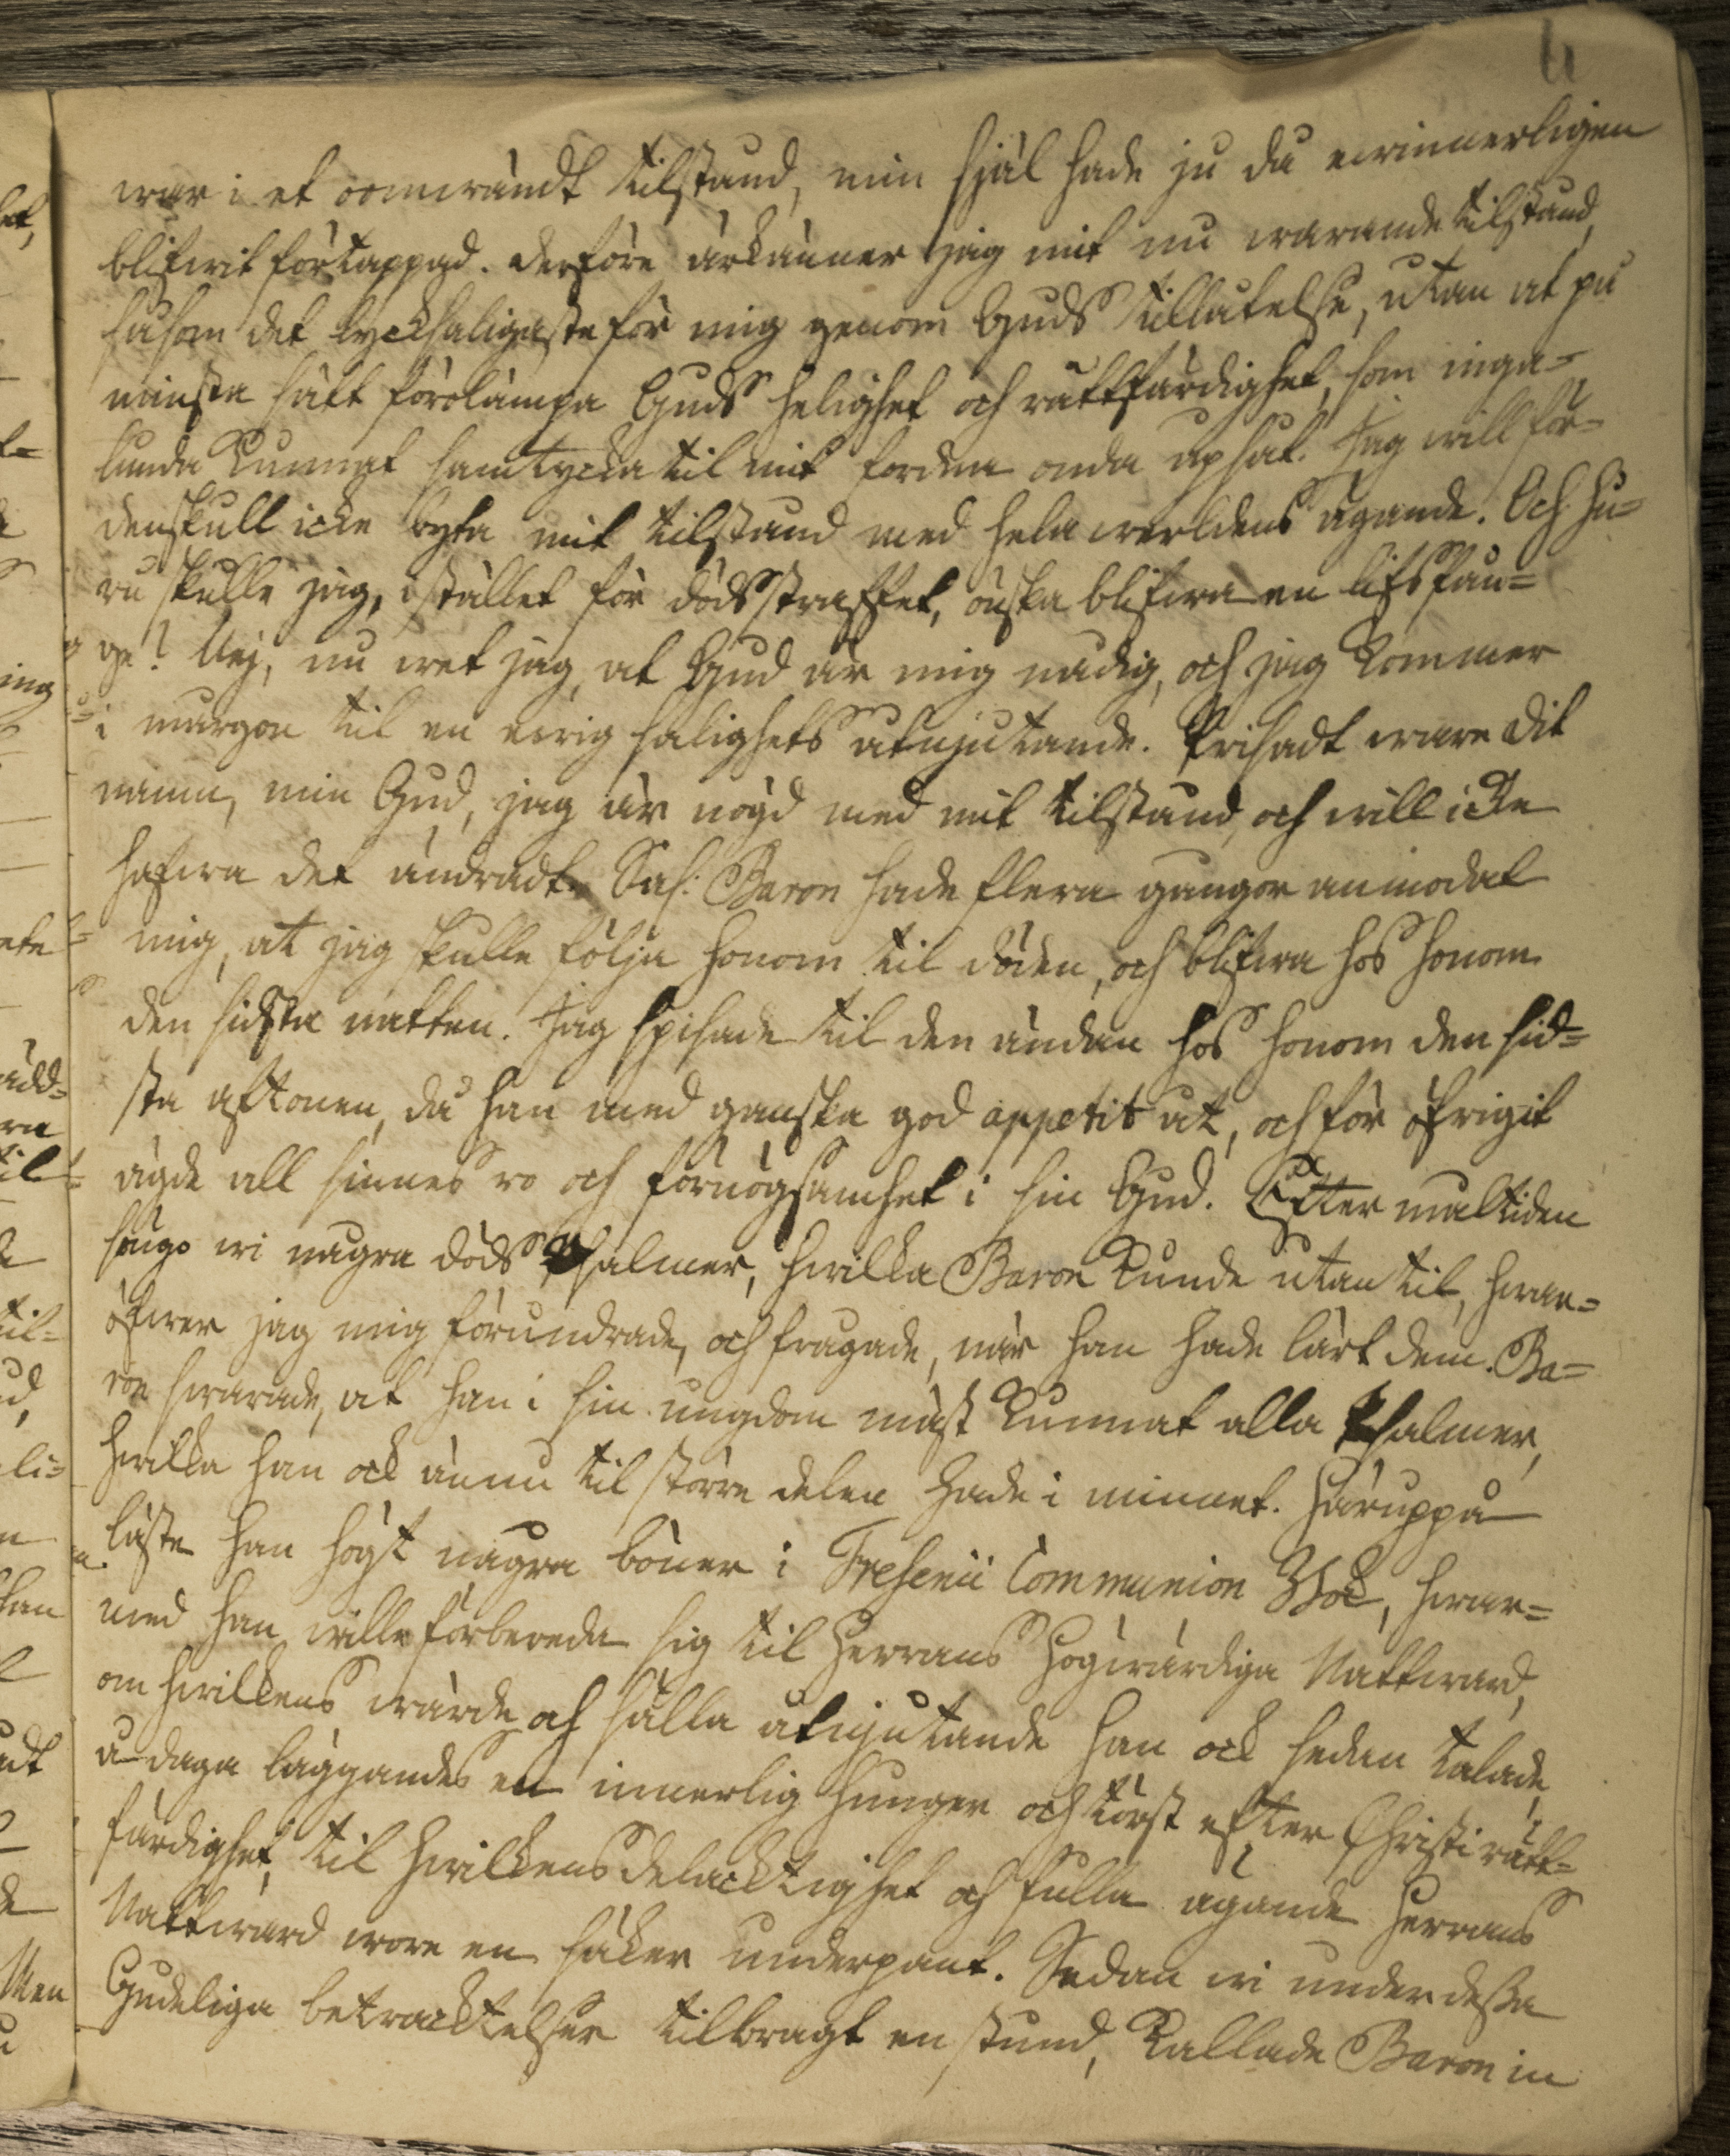 war i et oomwändt tilstånd, min själ hade ju då ewinnerligen
blifwit förtappad. Derföre ärkänner jag mit nu warande tilstånd,
såsom det lycksaligaste för mig genom Guds tillåtelse, utan at på
minsta sätt förolämpa Guds helighet och rättfärdighet, som inga=
lunda kunnat samtycka til mit fordna onda upsåt. Jag will för=
denskull icke byta mit tilstånd med hela werldens ägande. Och hu=
ru skulle jag, istället för dödsstraffet, önska blifwa en lifsfån=
ge? Nej, nu wet jag, at Gud är mig nådig, och jag kommer
i morgon til en ewig salighets åtnjutande. Prisadt ware dit
namn, min Gud, jag är nögd med mit tilstånd, och will icke
hafwa det ändradt. Sal: Baron hade flera gångor anmodat
mig, at jag skulle följa honom til döden, och blifwa hos honom
den sidsta natten. Jag spisade til den ändan hos honom den sid=
sta aftonen, då han med ganska god appetit åt, och för öfrigit
ägde all sinnes ro och förnögsamhet i sin Gud. Efter måltiden
söngo wi några döds Psalmer, hwilka Baron kunde utan til, hwar=
öfwer jag mig förundrade, och frågade, när han hade lärt dem. Ba=
ron swarade, at han i sin ungdom mäst kunnat alla Psalmer,
hwilka han ock ännu til större delen hade i minnet. Häruppå
läste han högt några böner i Fresenii Communion Bok, hwar=
med han wille förbereda sig til Herrans Högwärdiga Nattward,
om hwilkens wärde och sälla åtnjutande han ock sedan talade,
å daga läggandes en innerlig hunger och törst efter Christi rätt=
färdighet, til hwilkens delacktighet och fulla ägande Herrans
Nattward wore en säker underpant. Sedan wi under dessa
Gudeliga betracktelser tilbragt en stund, kallade Baron in